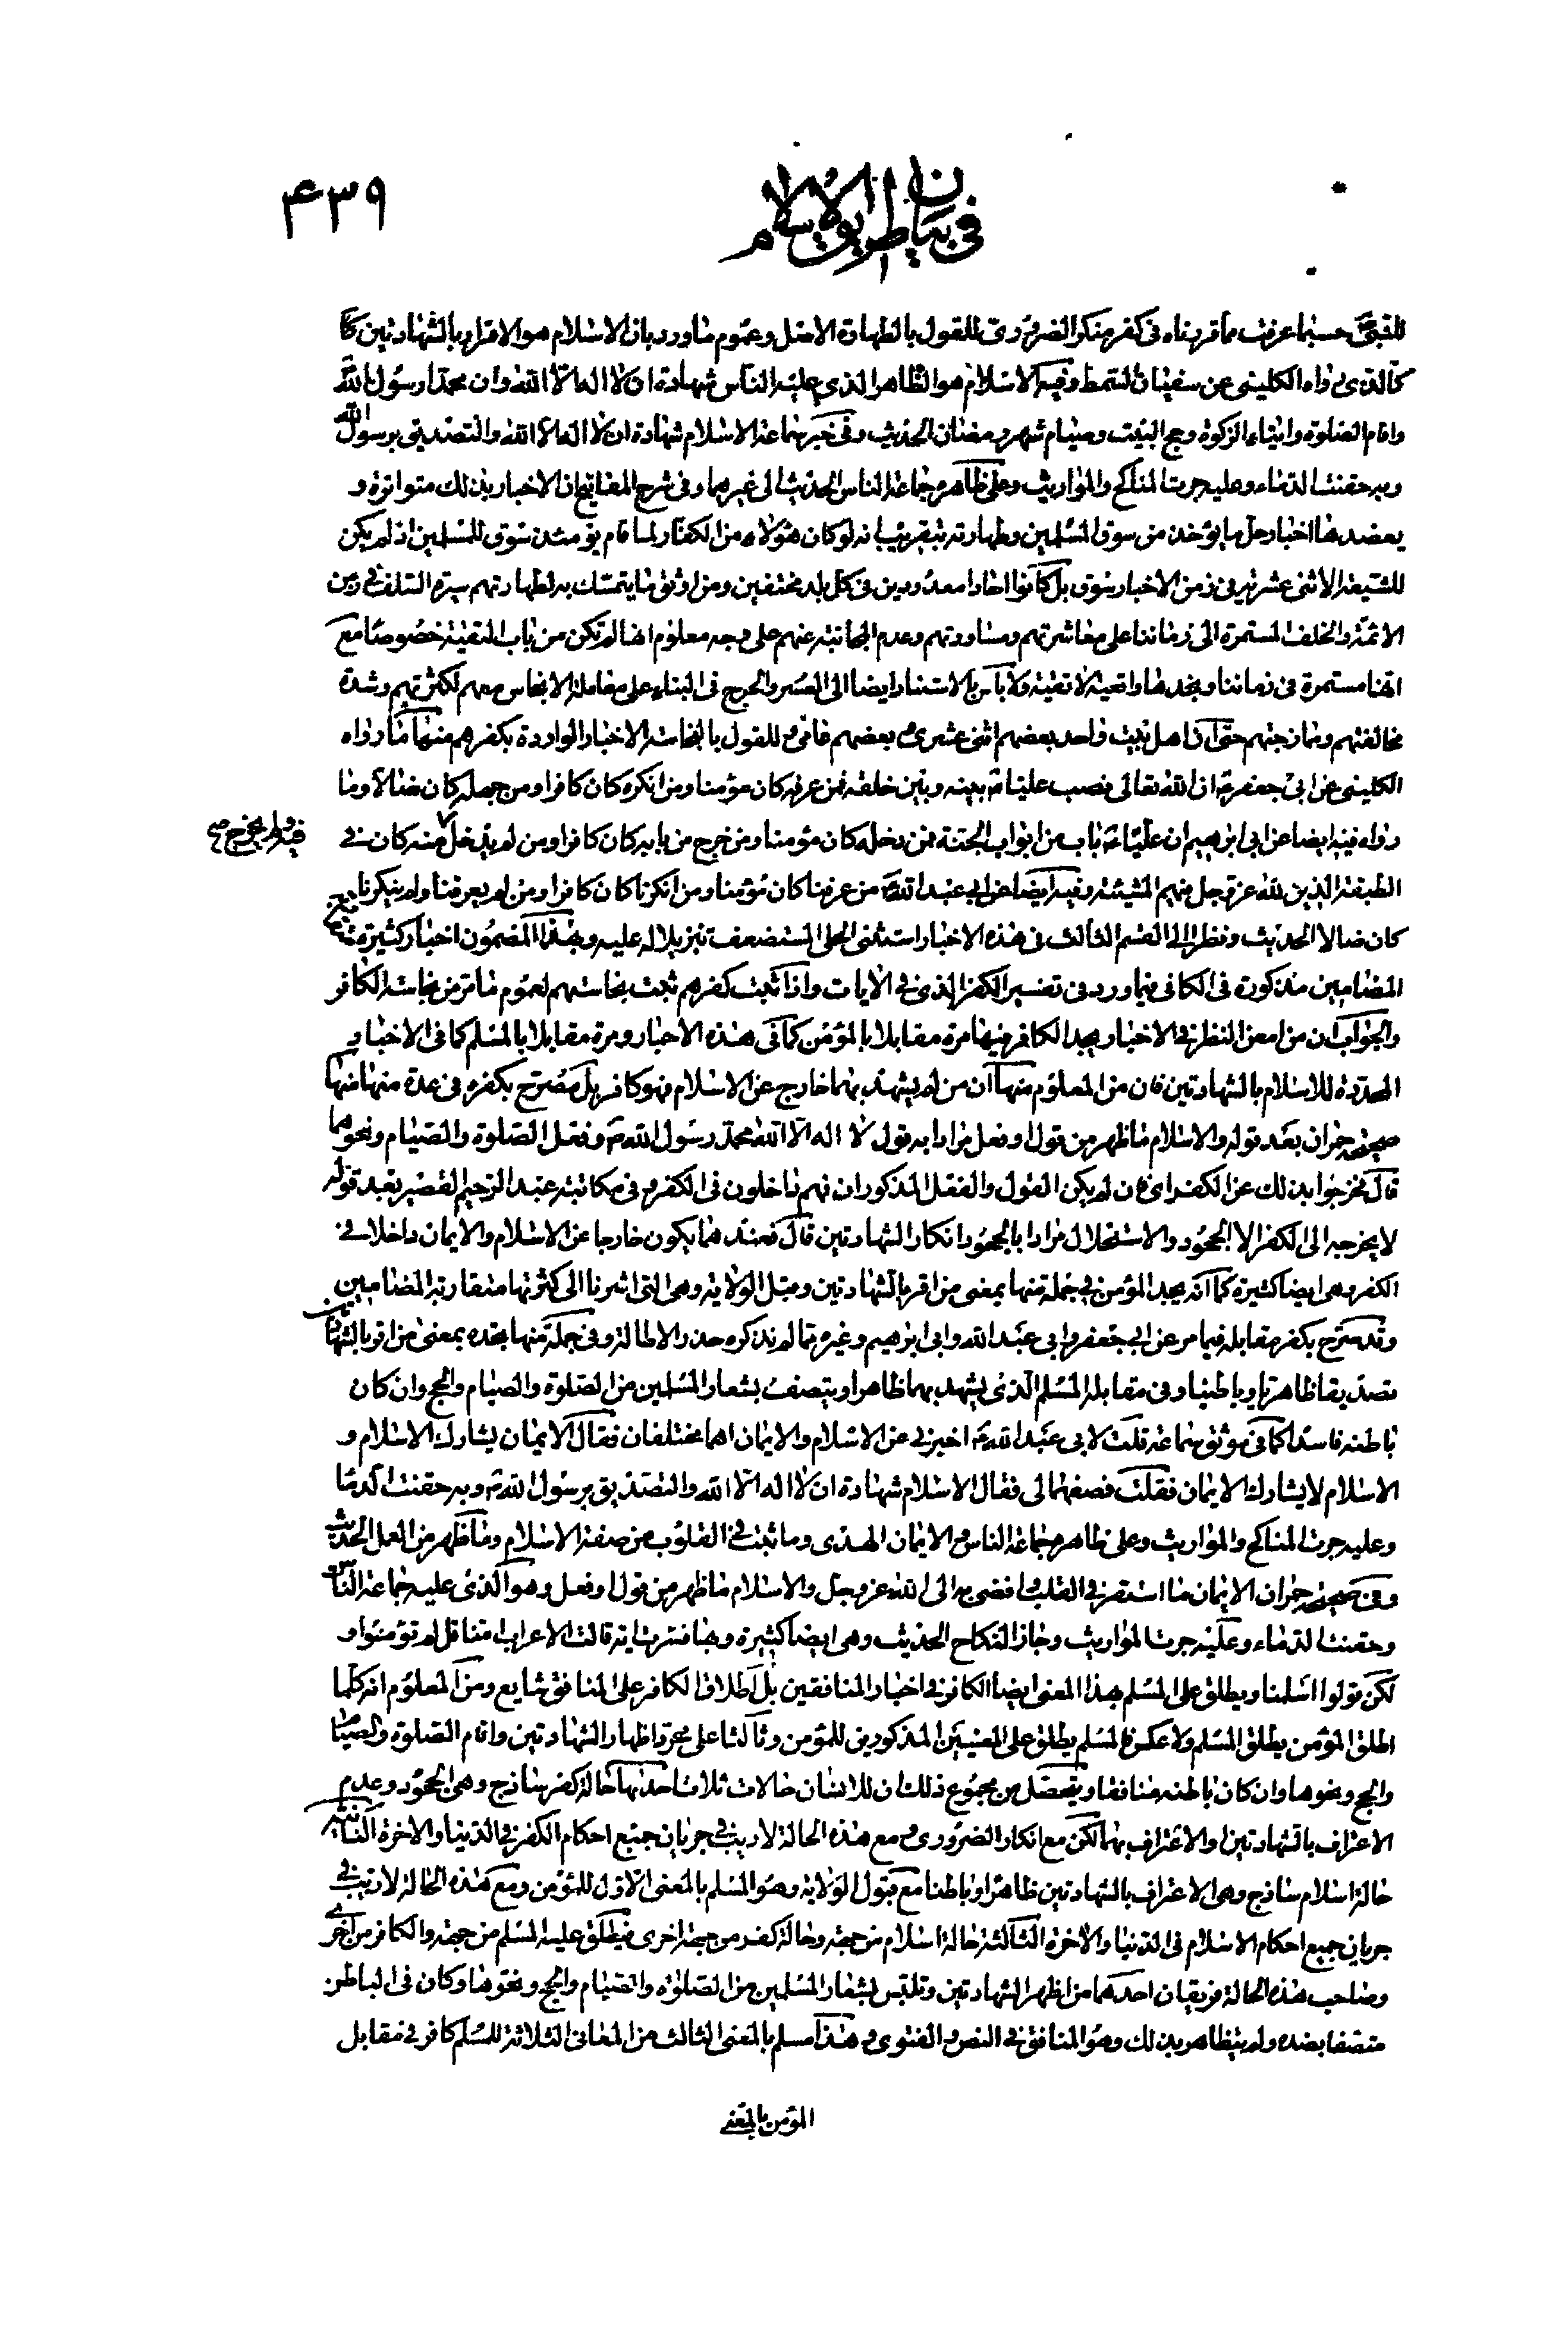 ۴۳۹
في بيان طريق الاسلام
للنبي ص حسبما عرفت مما قربناه في كفر منكر الضروري للقول بالطهارة الاصل وعموم ما ورد بان الاسلام هو الاقرار بالشهادتين كا
كالذي رواه الكليني عن سفيان السمط وفيه الاسلام هو الظاهر الذي عليه الناس شهادة ان لا اله الا الله وان محمدا رسول الله
واقام الصلوة وايتاء الزكوة وحج البيت وصيام شهر رمضان الحديث وفي خبر سماعة الاسلام شهادة ان لا اله الا الله والتصديق برسول الله
وبه حقنت الدماء وعليه جرت المناكح والمواريث وعلى ظاهره جماعة الناس الحديث الى غيرهما وفي شرح المفاتيح ان الاخبار بذلك متواترة و
يعضدها اخبار حل ما يؤخذ من سوق المسلمين وطهارته بتقريب انه لو كان هؤلاء من الكفار لما قام يومئذ سوق للمسلمين اذ لم يكن
للشيعة الاثنى عشرية في زمن الاخبار سوق بل كانوا احادا معدودين في كل بلد مختفين ومن اوثق ما يتمسك به لطهارتهم سيرة السلف في زمن
الائمة والخلف المستمرة الى زماننا على معاشرتهم ومساورتهم وعدم المجانبة عنهم على وجه معلوم انها لم تكن من باب التقية خصوصا مع
انها مستمرة في زماننا ونجدها واقعية لا تقية ولا باس بالاستناد ايضا الى العسر والحرج في البناء على معاملة الانجاس معهم لكثرتهم وشدة
مخالفتهم وممازجتهم حتى ان اهل بيت واحد بعضهم اثنى عشري وبعضهم للقول بالنجاسة الاخبار الواردة بكفرهم منها ما رواه
الكليني عن ابي جعفر ع ان الله تعالى نصب عليا ع بينه وبين خلقه فمن عرفه كان مؤمنا ومن انكره كان كافرا ومن جهله كان ضالا وما
رواه فيه ايضا عن ابي ابرهيم ان عليا ع باب من ابواب الجنة فمن دخله كان مؤمنا ومن خرج من بابه كان كافرا ومن لم يدخل منه كان في
فيه ولم يخرج صح
الطبقة الذين لله عز وجل فيهم المشيئة وفيه ايضا عن ابي عبد الله ع من عرفنا كان مؤمنا ومن انكرنا كان كافرا ومن لم يعرفنا ولم ينكرنا
كان ضالا الحديث ونظرا الى القسم الثالث في هذه الاخبار استثنى الحلي المستضعف تنزيلا له عليه وبهذا المضمون اخبار كثيرة
المضامين مذكورة في الكافي فيما ورد في تفسير الكفر الذي في الايات واذا ثبت كفرهم ثبت نجاستهم لعموم ما مر من نجاسة الكافر
والجواب ان من امعن النظر في الاخبار يجد الكافر فيها مرة مقابلا بالمؤمن كما في هذه الاخبار ومرة مقابلا بالمسلم كما في الاخبار
المحددة للاسلام بالشهادتين فان من المعلوم منها ان من لم يشهد بهما خارج عن الاسلام فهو كافر بل مصرح بكفره في عدة منها منها
صحيحة حمران بعد قوله والاسلام ما ظهر من قول او فعل مرادا به قول لا اله الا الله محمد رسول الله ص وفعل الصلوة والصيام ونحوهما
قال فخرجوا بذلك عن الكفر اي فان لم يكن القول والفعل المذكوران فهم داخلون في الكفر وفي مكاتبة عبد الرحيم القصير بعد قوله
لا يخرجه الى الكفر الا الجحود والاستحلال مرادا بالجحود انكار الشهادتين قال فعندها يكون خارجا عن الاسلام والايمان داخلا في
الكفر وهي ايضا كثيرة كما انه يجد المؤمن في جملة منها بمعنى من اقر بالشهادتين وقبل الولاية وهي التي اشرنا الى كثرتها متقاربة المضامين
وقد صرح بكفر مقابله فيما مر عن ابي جعفر وابي عبد الله وابي ابرهيم وغيره مما لم نذكره حذر الاطالة وفي جملة منها يجده بمعنى من اقر بالشهادتين
تصديقا ظاهريا وباطنيا وفي مقابله المسلم الذي يشهد بهما ظاهرا ويتصف بشعار المسلمين من الصلوة والصيام والحج وان كان
باطنه فاسدا كما في موثق سماعة قلت لابي عبد الله ع اخبرني عن الاسلام والايمان اهما مختلفان فقال الايمان يشارك الاسلام و
الاسلام لا يشارك الايمان فقلت فصفهما لي فقال الاسلام شهادة ان لا اله الا الله والتصديق برسول الله ص وبه حقنت الدما
وعليه جرت المناكح والمواريث وعلى ظاهره جماعة الناس والايمان الهدى وما ثبت في القلوب من صفة الاسلام وما ظهر من العمل الحديث
وفي صحيحة حمران الايمان ما استقر في القلب وافضى به الى الله عز وجل والاسلام ما ظهر من قول او فعل وهو الذي عليه جماعة الناس
وحقنت الدماء وعليه جرت المواريث وجاز النكاح الحديث وهي ايضا كثيرة وبها فسرت اية قالت الاعراب امنا قل لم تؤمنوا و
لكن قولوا اسلمنا ويطلق على المسلم بهذا المعنى ايضا الكافر في اخبار المنافقين بل اطلاق الكافر على المنافق شايع ومن المعلوم انه كلما
اطلق المؤمن يطلق المسلم ولا عكس فالمسلم يطلق على المعنيين المذكورين للمؤمن وثالثا على مجرد اظهار الشهادتين واقام الصلوة والصيام
والحج ونحوها وان كان باطنه منافقا ويتحصل من مجموع ذلك ان للانسان حالات ثلاث احدها حالة كفر ساذج وهي الجحود وعدم
الاعتراف بالشهادتين او الاعتراف بهما لكن مع انكار الضروري ومع هذه الحالة لا ريب في جريان جميع احكام الكفر في الدنيا والاخرة الثانية
حالة اسلام ساذج وهي الاعتراف بالشهادتين ظاهرا وباطنا مع قبول الولاية وهو المسلم بالمعنى الاول للمؤمن ومع هذه الحالة لا ريب في
جريان جميع احكام الاسلام في الدنيا والاخرة الثالثة حالة اسلام من جهة وحالة كفر من جهة اخرى فيطلق عليه المسلم من جهة والكافر من اخرى
وصاحب هذه الحالة فريقان احدهما من اظهر الشهادتين وتلبس بشعار المسلمين من الصلوة والصيام والحج ونحوها وكان في الباطن
متصفا بضده ولم يتظاهر بذلك وهو المنافق في النص والفتوى وهذا مسلم بالمعنى الثالث من المعاني الثلاثة للمسلم كافر في مقابل
المؤمن بالمعنى